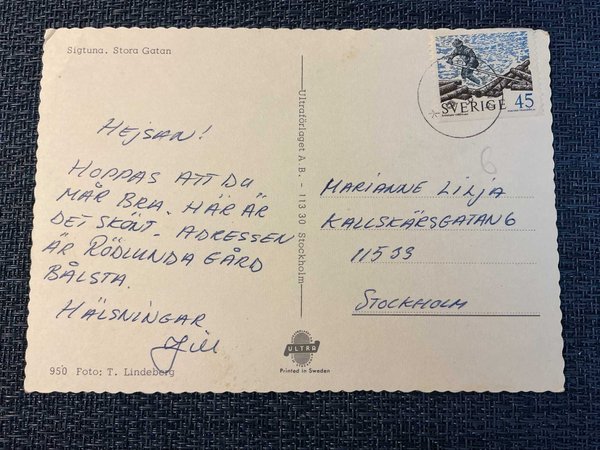 Sigtuna. Stora Gatan
HEJSAN!
HOPPAS ATT DU
MÅR BRA. HÄR ÄR
DET SKÖNT. ADRESSEN
ÄR RÖDLUNDA GÅRD
BÅLSTA.
HÄLSNINGAR
Jill
950 Foto: T. Lindeberg
Ultraförlaget A.B. - 113 30 Stockholm
ULTRA
Printed in Sweden
SVERIGE 45
6
MARIANNE LILJA
KALLSKÄRSGATAN 6
11533
STOCKHOLM